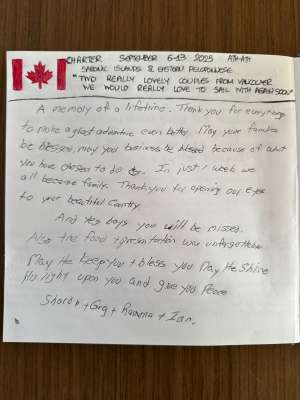 CHARTER SEPTEMBER 6-13 2025 ATH-ATH
SARONIC ISLANDS & EASTERN PELOPONNESE
"TWO REALLY LOVELY COUPLES FROM VANCOUVER
WE WOULD REALLY LOVE TO SAIL WITH AGAIN SOON"
A memory of a lifetime. Thank you for everything
to make a great adventure even better. May your families
be blessed, may you business be blessed because of what
you have chosen to do. In just 1 week we
all became family. Thank you for opening our eyes
to your beautiful Country
And yes boys you will be missed.
Also the food + presentation was unforgettable
May He keep you + bless you May He Shine
His light upon you and give you Peace
Sharon + Greg + Ramona + Ian.